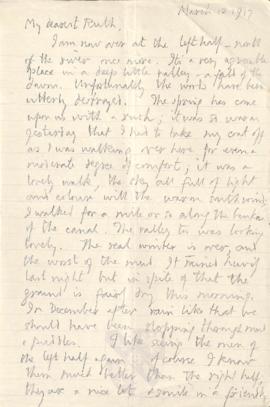 March 18 1917
My dearest Ruth,
I am now over at the left half – north
of the river once more. It's a very agreeable
place in a deep little valley – a fold of the
downs. Unfortunately the woods have been
utterly destroyed. The spring has come
upon us with a rush; it was so warm
yesterday that I had to take my coat off
as I was walking over here for even a
moderate degree of comfort; it was a
lovely walk, the sky all full of light
and colour with the warm south wind;
I walked for a mile or so along the banks
of the canal. The valley too was looking
lovely. The real winter is over, and
the worst of the mud. It rained heavily
last night but in spite of that the
ground is fairly dry this morning.
In December after rain like that we
should have been slopping through mud
& puddles. I like seeing the men of
the left half again. Of course I know
them much better than the right half;
they are a nice lot & smile in a friendly